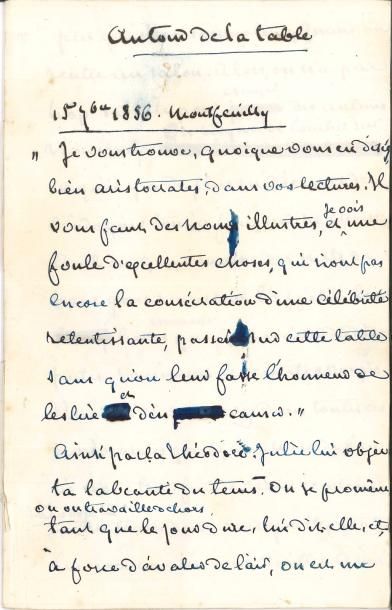 Autour de la table
15 7bre 1856. Montfeuilly
„ Je vous trouve, quoique vous en disiez
bien aristocrates, dans vos lectures. Il
vous faut des noms illustres, et je vois une
foule d'excellentes choses, qui n'ont pas
encore la consécration d'une célébrité
retentissante, passer sur cette table
sans qu'on leur fasse l'honneur de
les lire et d'en causer. „
Ainsi parla Théodore. Julie lui objec
ta l'absence du tems. On se promène
ou on travaille dehors,
tant que le jour dure, lui dit-elle, et,
à force d'avaler de l'air, on est une